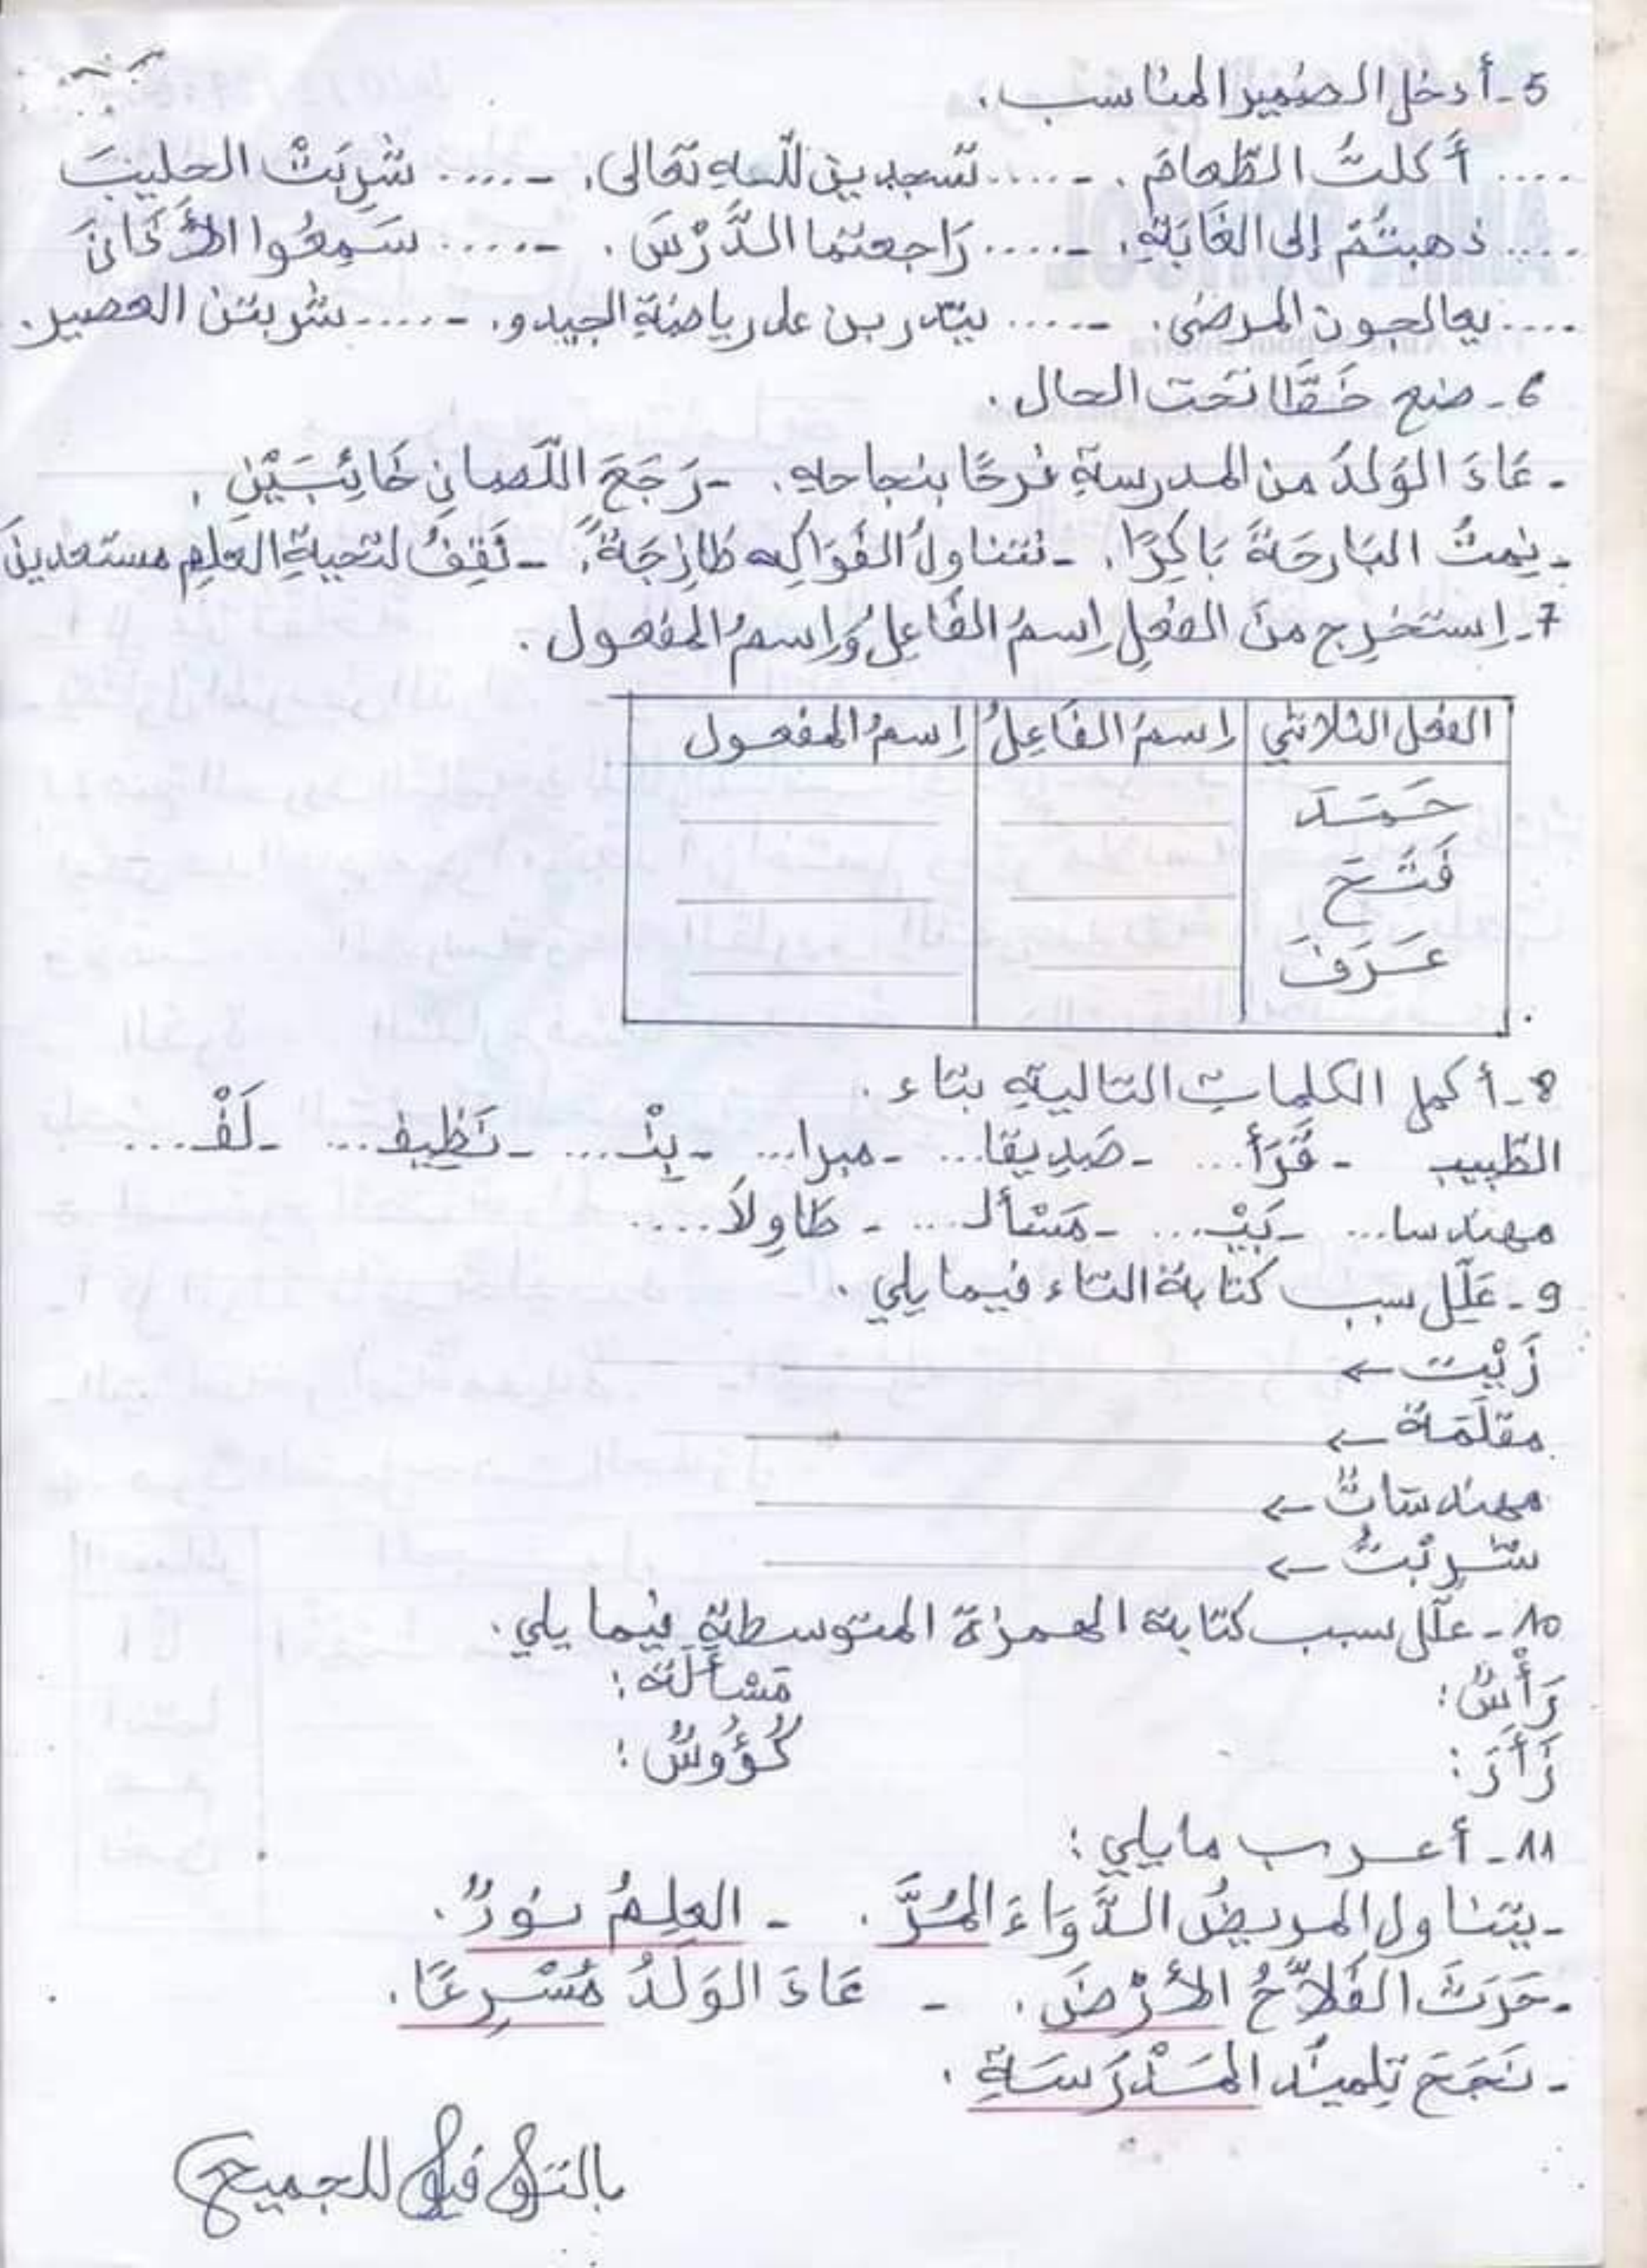 5 - أدخل الضمير المناسب.
.... أكلتُ الطّعامَ. - ..... تسجدين للّه تعالى. - ..... شَرِبَتْ الحليبَ
.... ذهبتُمْ إلى الغَابَةِ. - ..... رَاجعتما الدَّرْسَ. - ..... سَمِعُوا الأَذَانَ
.... يعالجون المرضى. - ..... يتدربن على رياضة الجيدو. - ..... شربتن العصير.
6 - ضع خَطًّا تَحت الحال.
- عَادَ الوَلدُ من المدرسةِ فرحًا بنجاحهِ. - رَجَعَ اللّصانِ خَائِبَيْنِ.
- نِمتُ البَارحَةَ بَاكِرًا. - نتناولُ الفَوَاكِه طَازِجَةً. - نَقِفُ لتحيةِ العلمِ مستعدينَ
7 - اِستَخرِج منَ الفعْلِ اِسمُ الفَاعِلُ وَاِسمُ المفعول.
الفعل الثلاثي | اِسمُ الفَاعِلُ | اِسمُ المفعول
حَمَدَ
فَتَحَ
عَرَفَ
8 - أكمل الكلماتِ التاليةِ بتاء.
الطّبيب - قَرَأ... - صَدِيقا... - مبرا... - بِنْـ... - نَظِيف... - لَفْـ...
مهندسا... - بَيْـ... - مَسْألـ... - طَاوِلاَ.....
9 - عَلّل سبب كتابة التاء فيما يلي.
زَيْت ←
مقلَمَة ←
مهندسَاتٌ ←
شَرِبْتُ ←
10 - علّل سبب كتابة الهمزة المتوسطةِ فيما يلي.
رَأْسٌ: مَسْأَلَة:
زَأَرَ: كُؤُوسٌ:
11 - أعرب مايلي:
- يتناول المريضُ الدَّوَاءَ المُرَّ. - العِلمُ نورٌ.
- حَرَثَ الفَلاَّحُ الأَرْضَ. - عَادَ الوَلَدُ مُسْرِعًا.
- نَجَحَ تِلميذُ المَدْرَسَةِ.
بالتوفيق للجميع